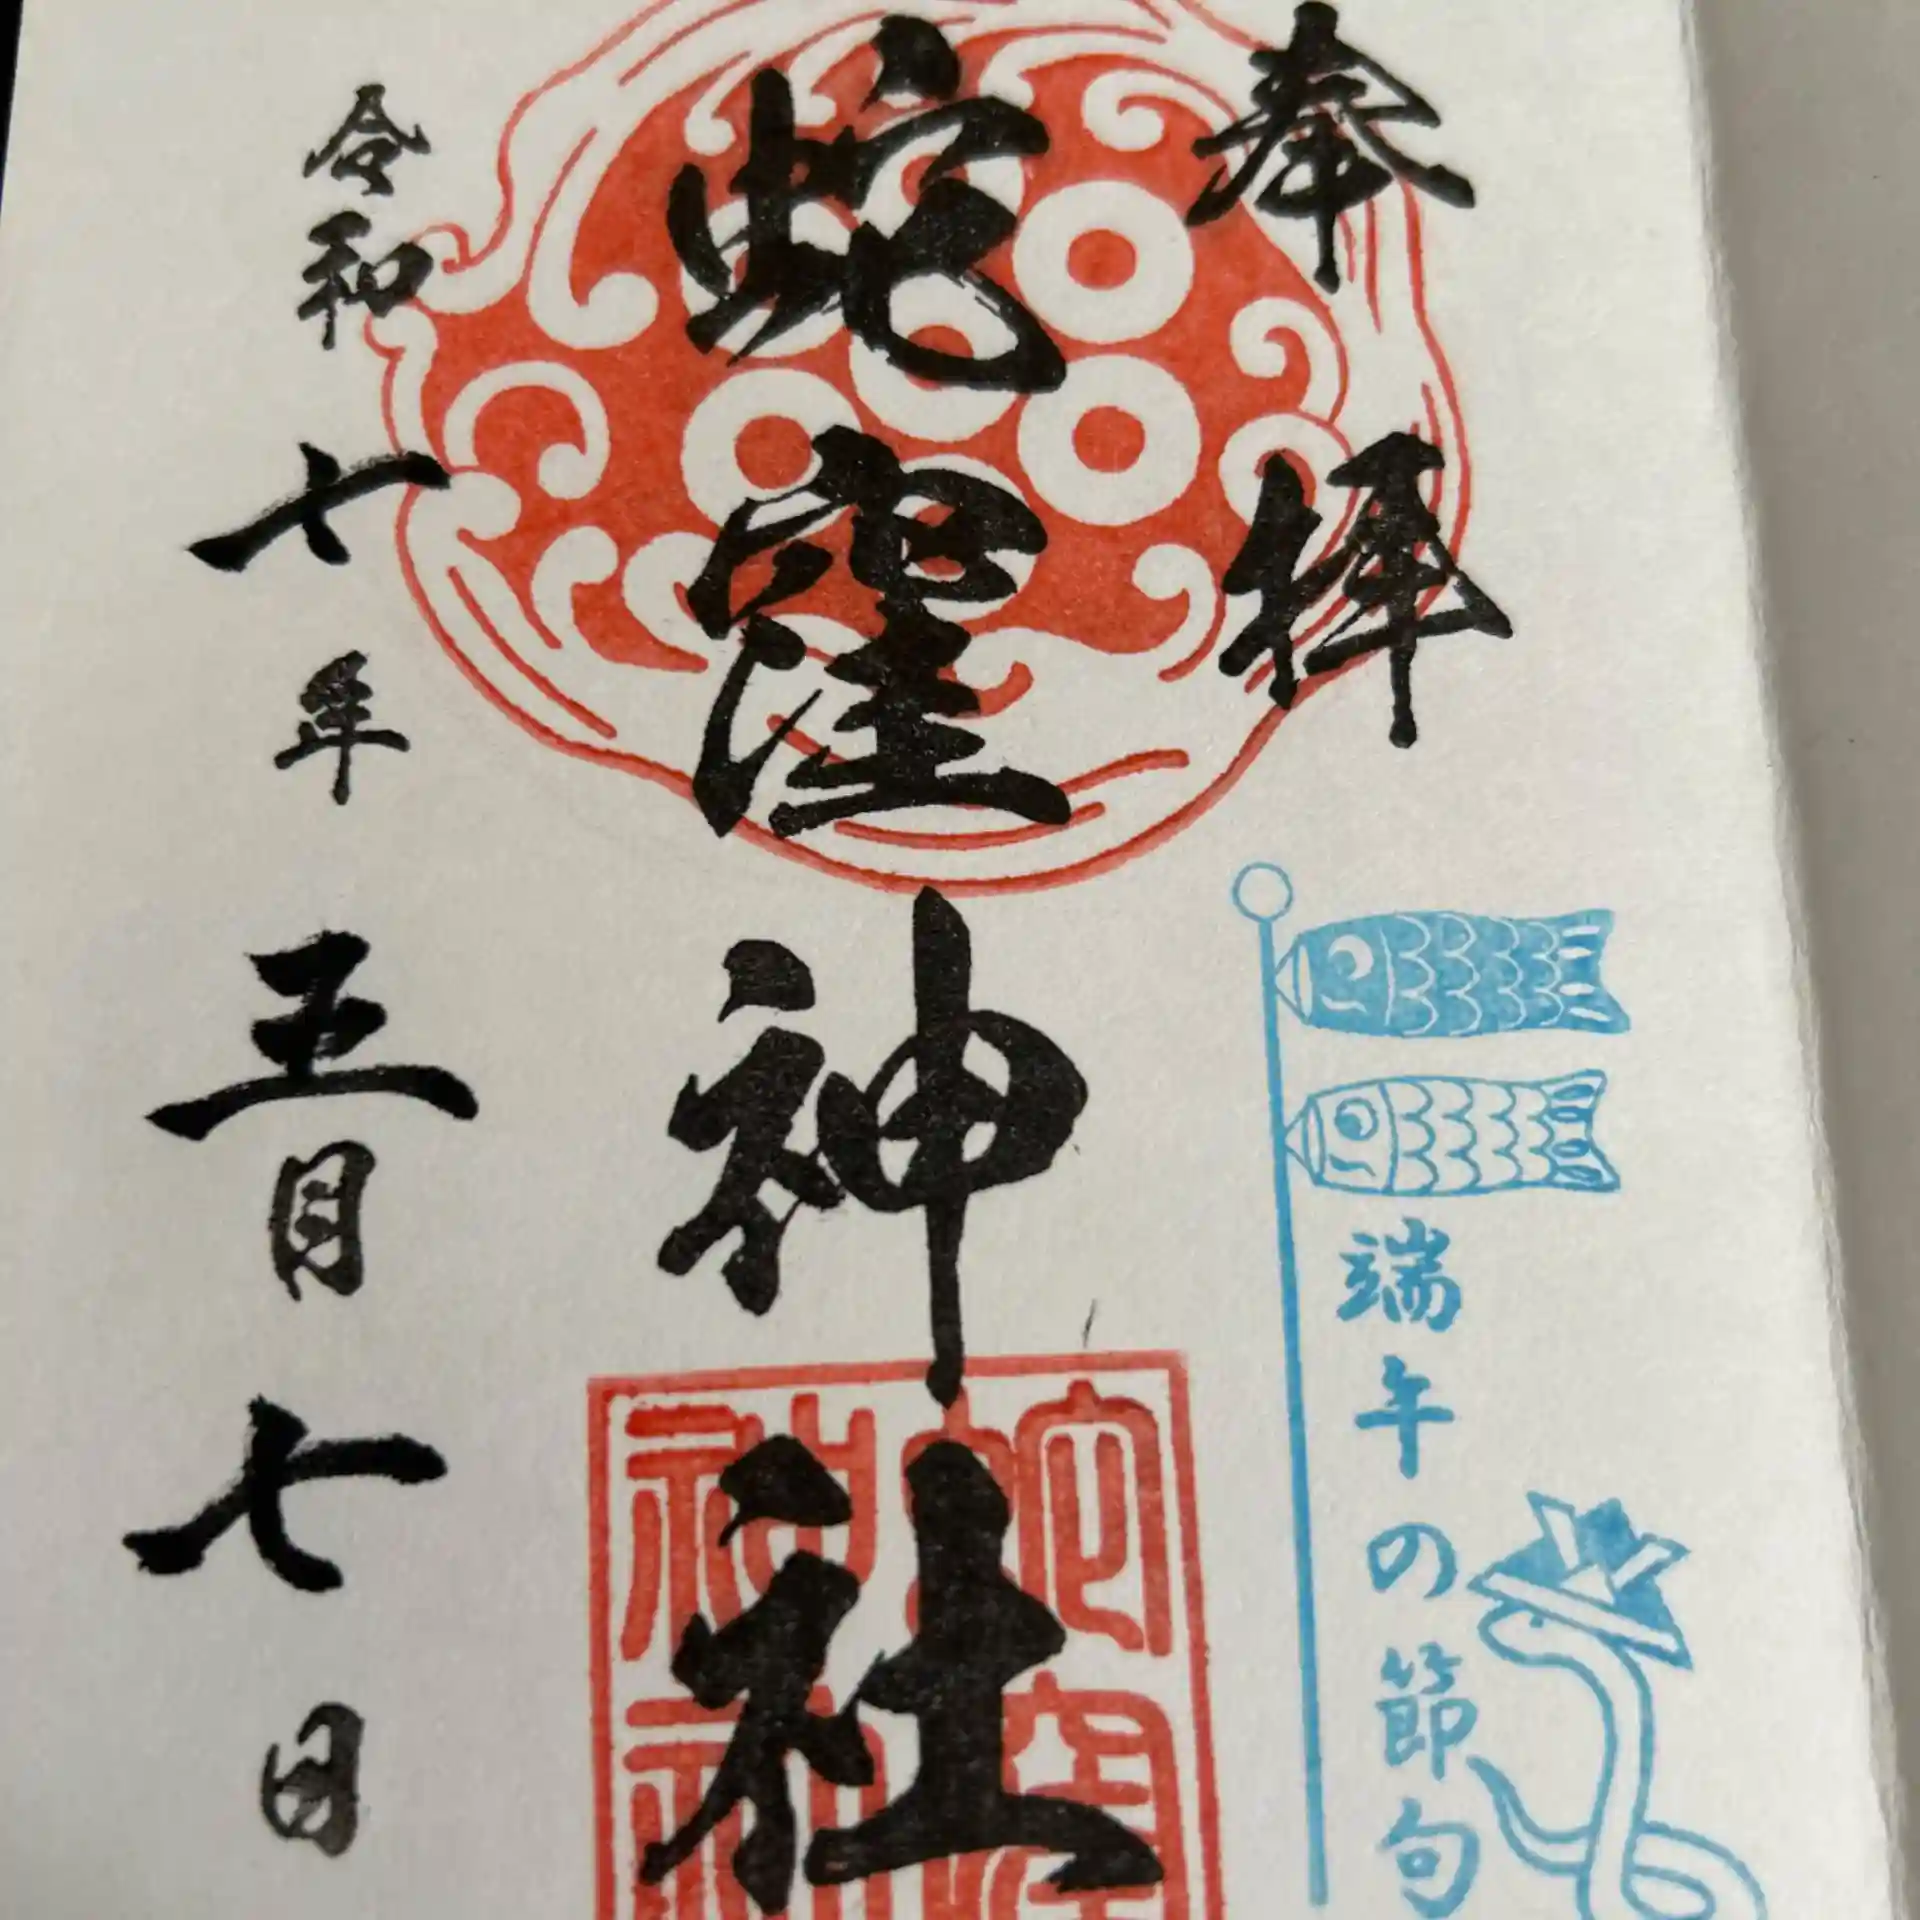 奉拝
蛇窪神社
令和七年五月七日
端午の節句
蛇窪神社